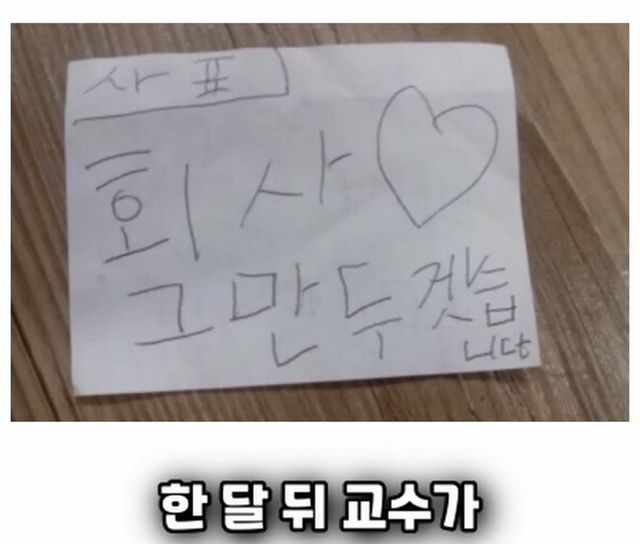 사표
회사♡
그만두겟습
니다
한 달 뒤 교수가